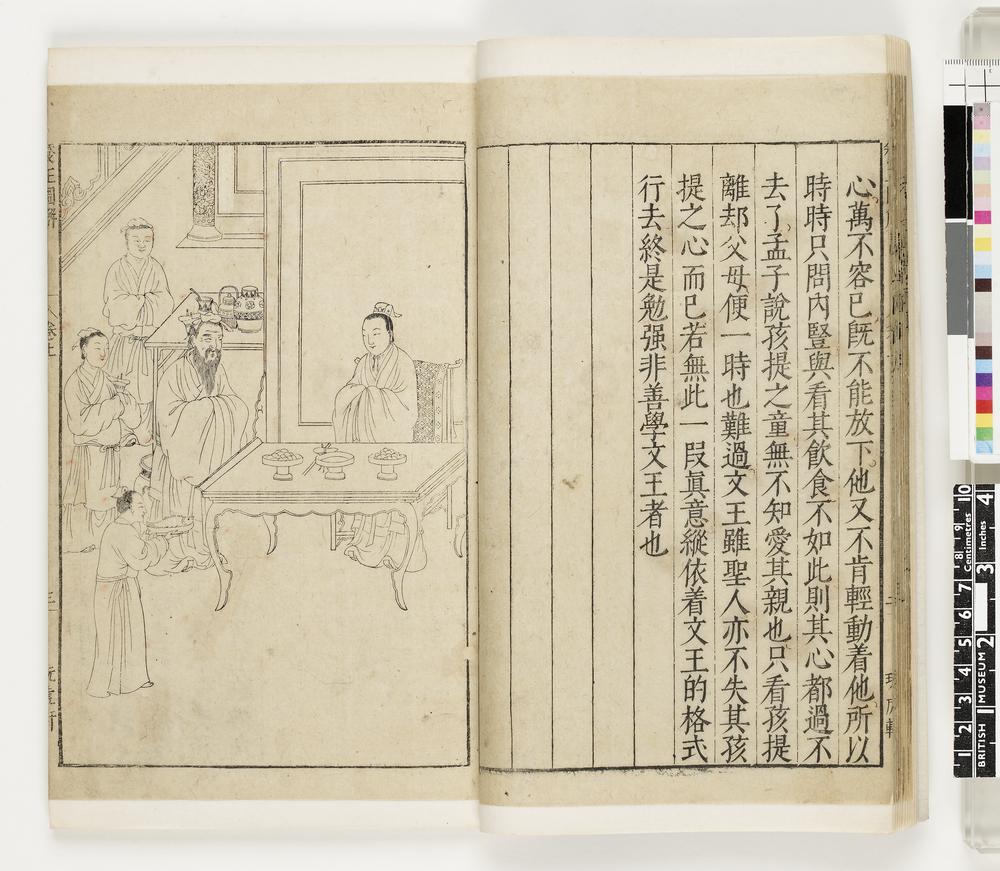 心萬不容已既不能放下他又不肯輕動着他所以
時時只問內豎與看其飲食不如此則其心都過不
去了孟子說孩提之童無不知愛其親也只看孩提
離却父母便一時也難過文王雖聖人亦不失其孩
提之心而已若無此一段眞意縱依着文王的格式
行去終是勉强非善學文王者也
養正圖解
卷上
三
10 9 8 7 6 5 4 3 2 1
Centimetres
4 3 2 1
Inches
BRITISH MUSEUM